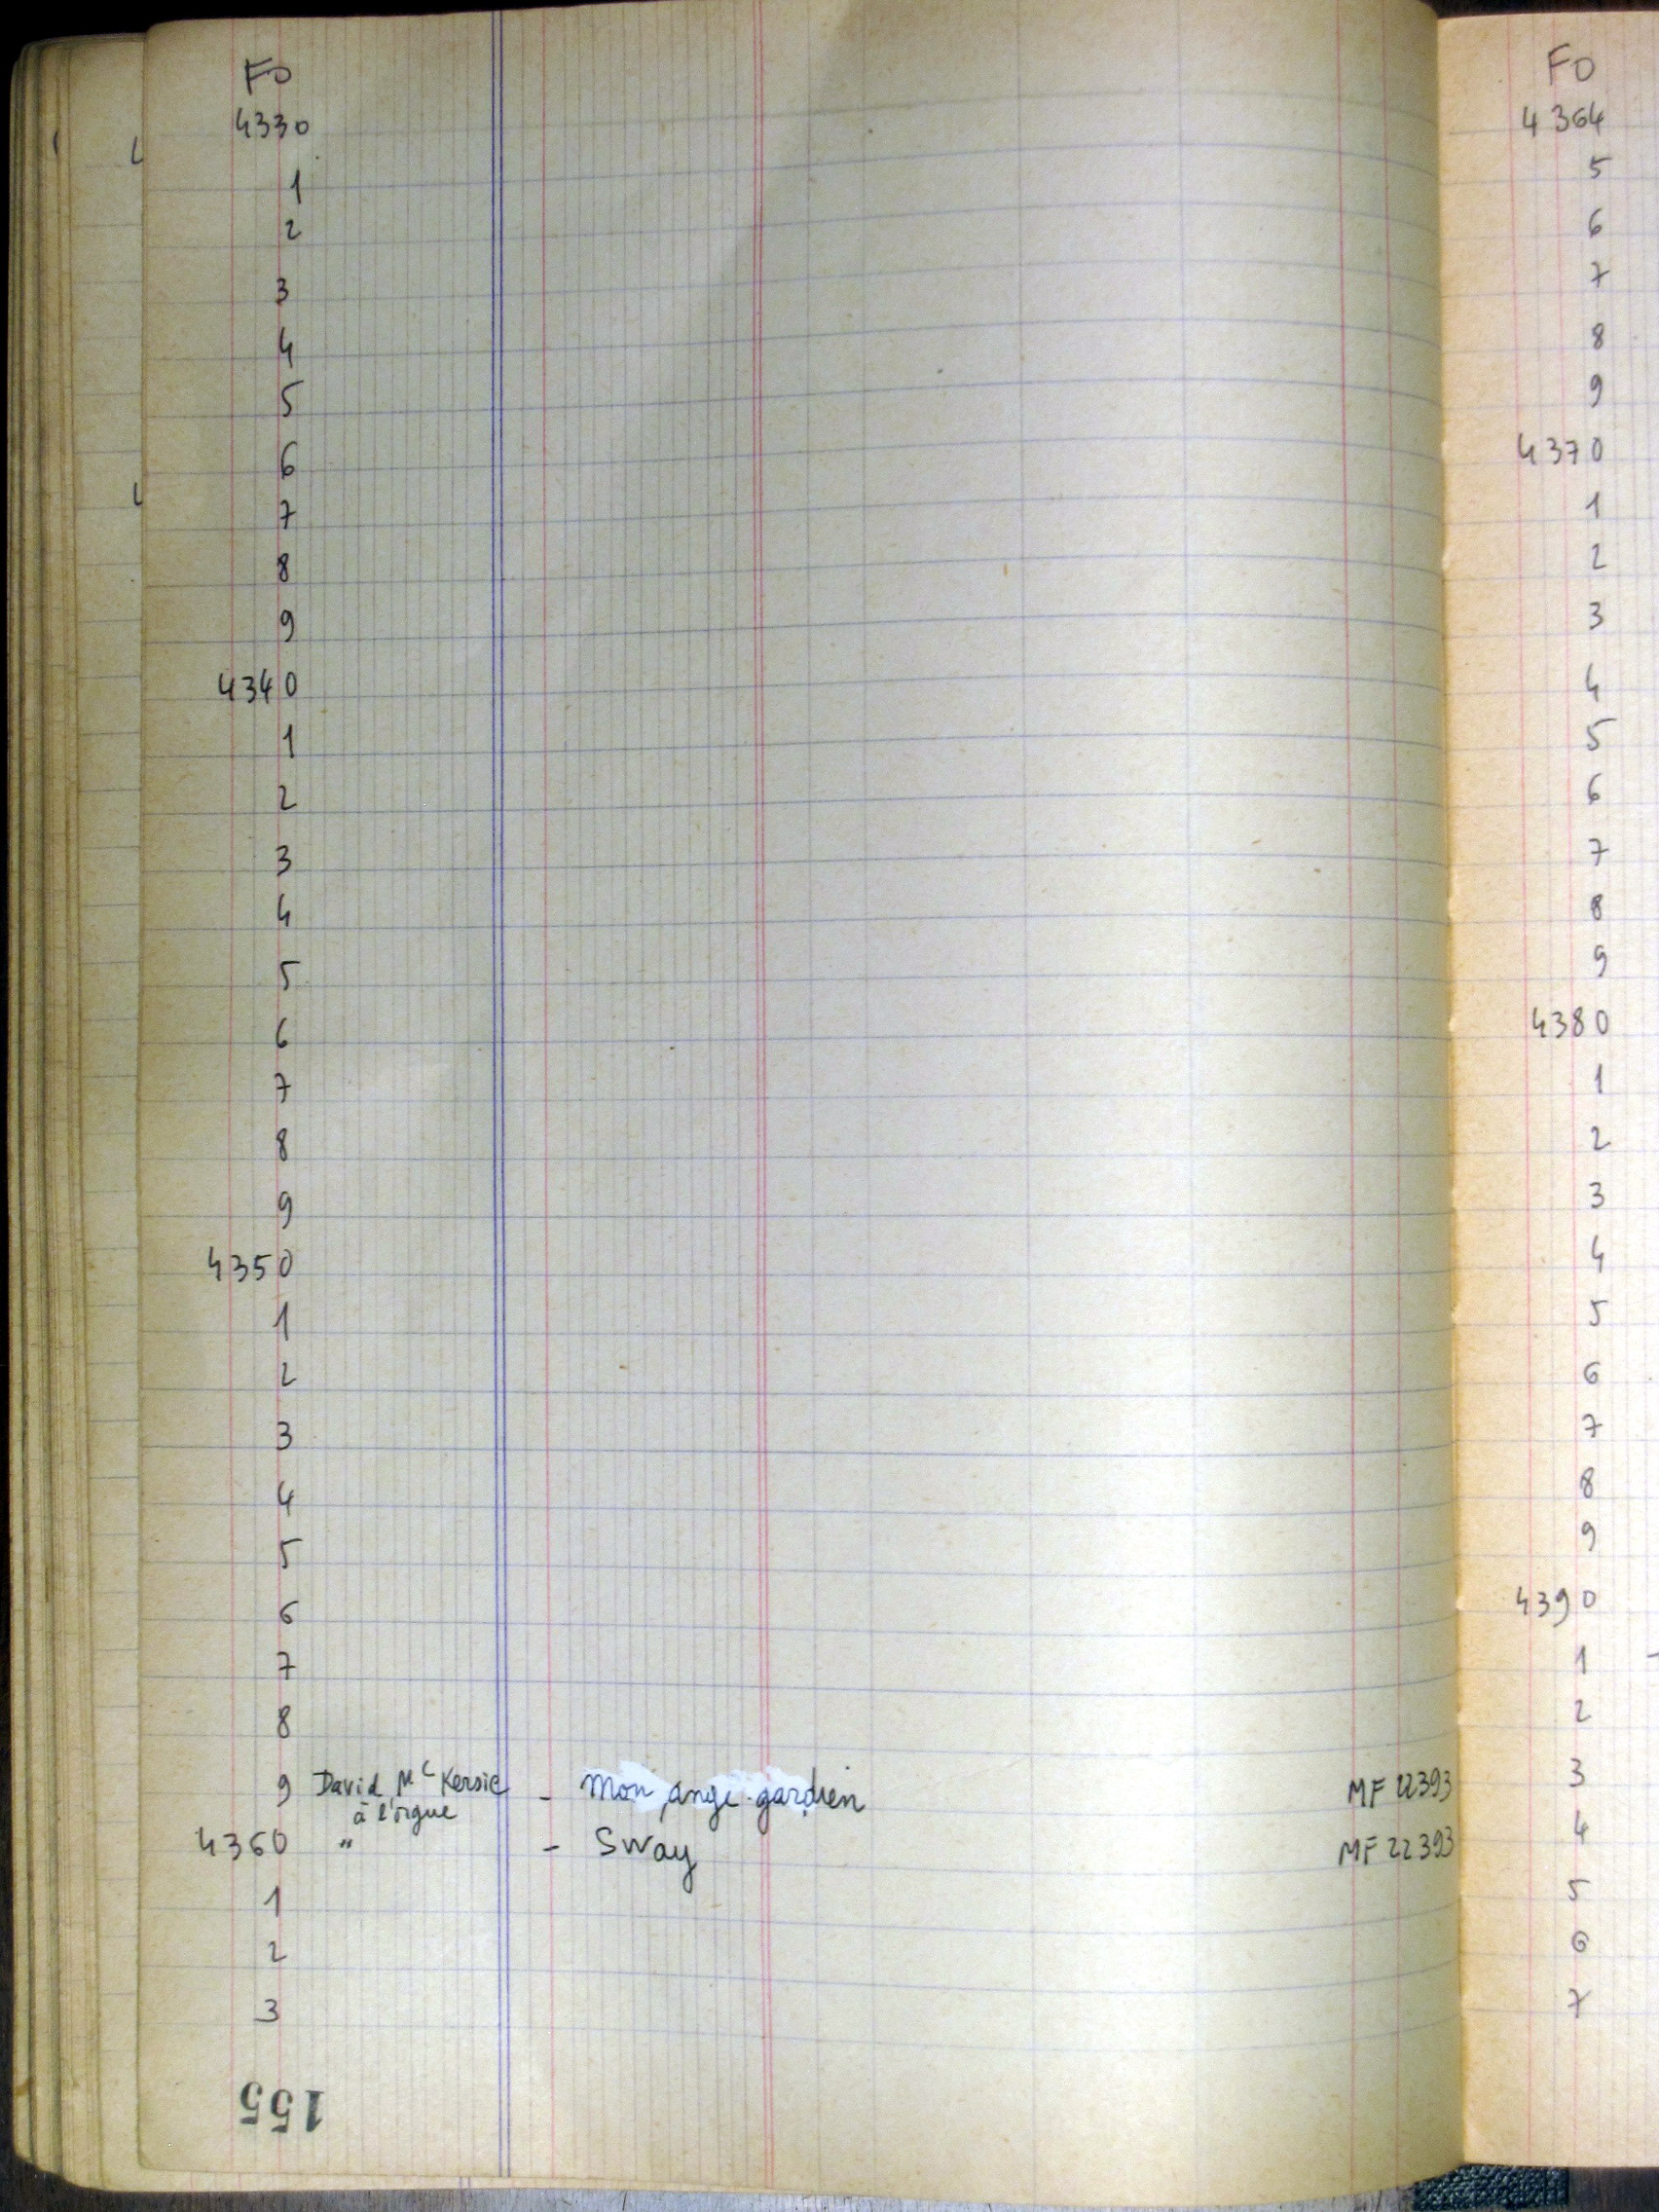 FO
4330
1
2
3
4
5
6
7
8
9
4340
1
2
3
4
5
6
7
8
9
4350
1
2
3
4
5
6
7
8
9 David Mc Kersie - Mon ange gardien MF 22393
à l'orgue
4360 " - Sway MF 22393
1
2
3
155
FO
4364
5
6
7
8
9
4370
1
2
3
4
5
6
7
8
9
4380
1
2
3
4
5
6
7
8
9
4390
1
2
3
4
5
6
7